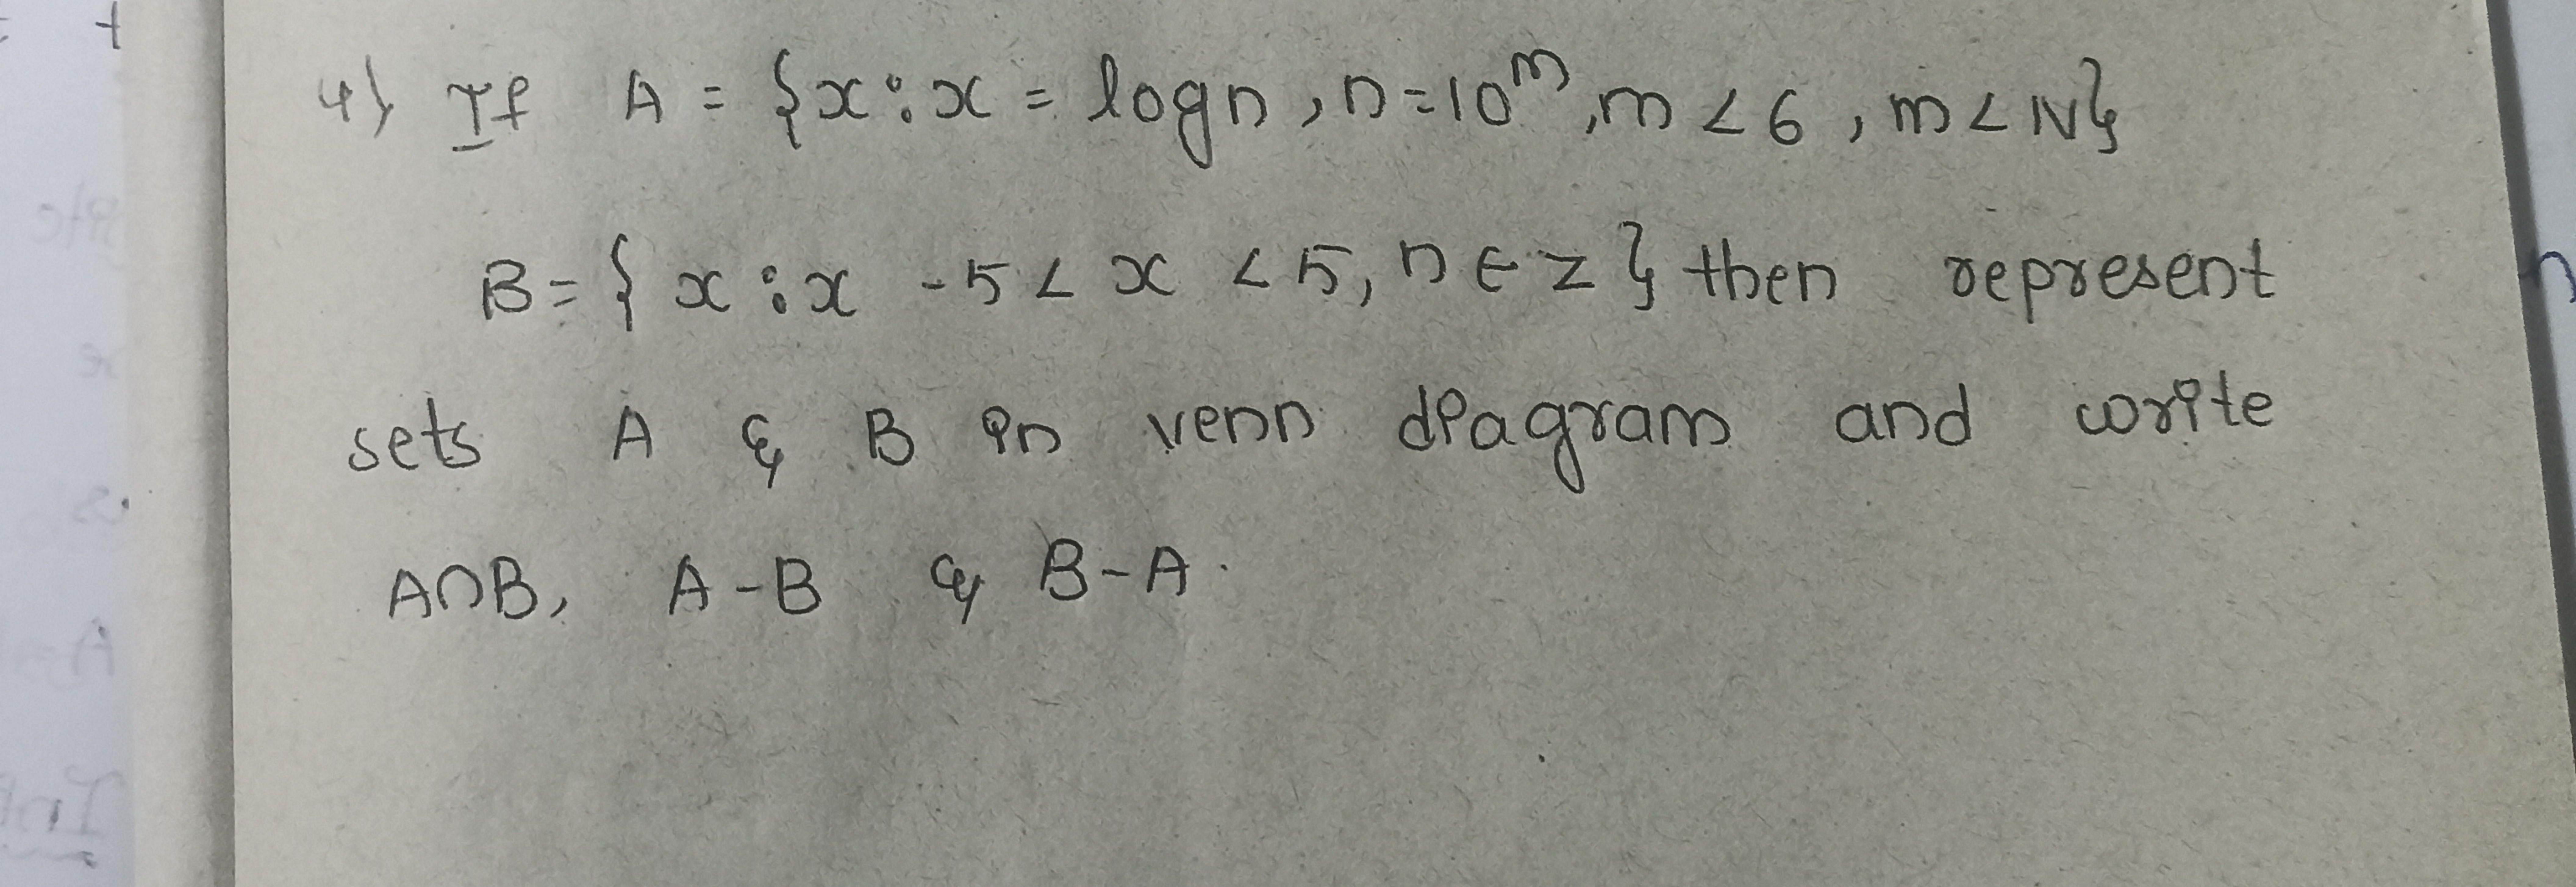 4} If A = {x : x = log n, n = 10^m, m < 6, m < N}
B = { x : x -5 < x < 5, n ∈ z } then represent
sets A & B in venn diagram and write
A∩B, A-B & B-A.